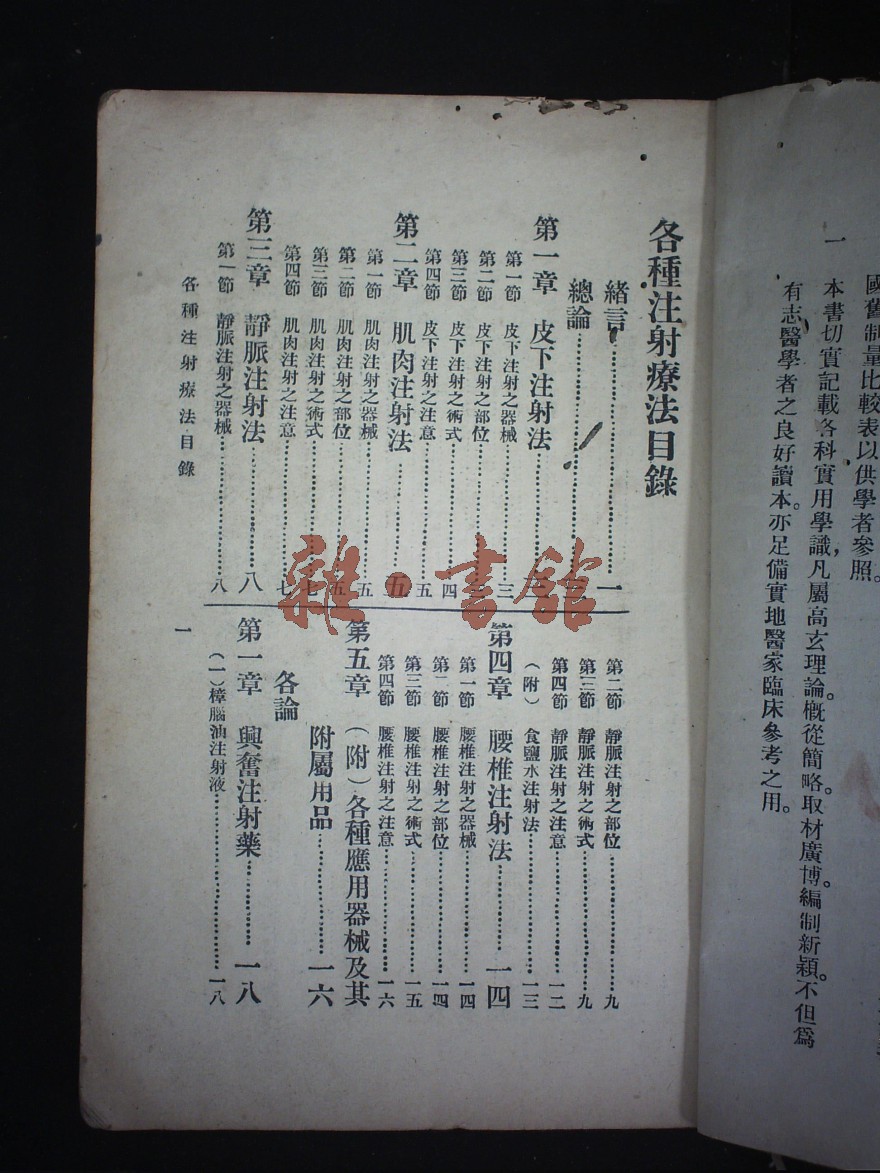 國舊制量比較表以供學者參照。
一 本書切實記載各科實用學識,凡屬高玄理論。概從簡略。取材廣博。編制新穎。不但爲
有志醫學者之良好讀本。亦足備實地醫家臨床參考之用。
各種注射療法目錄
緒言……一
總論……
第一章 皮下注射法……
第一節 皮下注射之器械……三
第二節 皮下注射之部位……
第三節 皮下注射之術式……四
第四節 皮下注射之注意……五
第二章 肌肉注射法……五
第一節 肌肉注射之器械……五
第二節 肌肉注射之部位……五
第三節 肌肉注射之術式……七
第四節 肌肉注射之注意……七
第三章 靜脈注射法……八
第一節 靜脈注射之器械……八
第二節 靜脈注射之部位……九
第三節 靜脈注射之術式……九
第四節 靜脈注射之注意……一二
(附) 食鹽水注射法……一三
第四章 腰椎注射法……一四
第一節 腰椎注射之器械……一四
第二節 腰椎注射之部位……一四
第三節 腰椎注射之術式……一五
第四節 腰椎注射之注意……一六
第五章 (附)各種應用器械及其
附屬用品……一六
各論
第一章 興奮注射藥……一八
(一)樟腦油注射液……一八
各種注射療法目錄
一
雜·書館